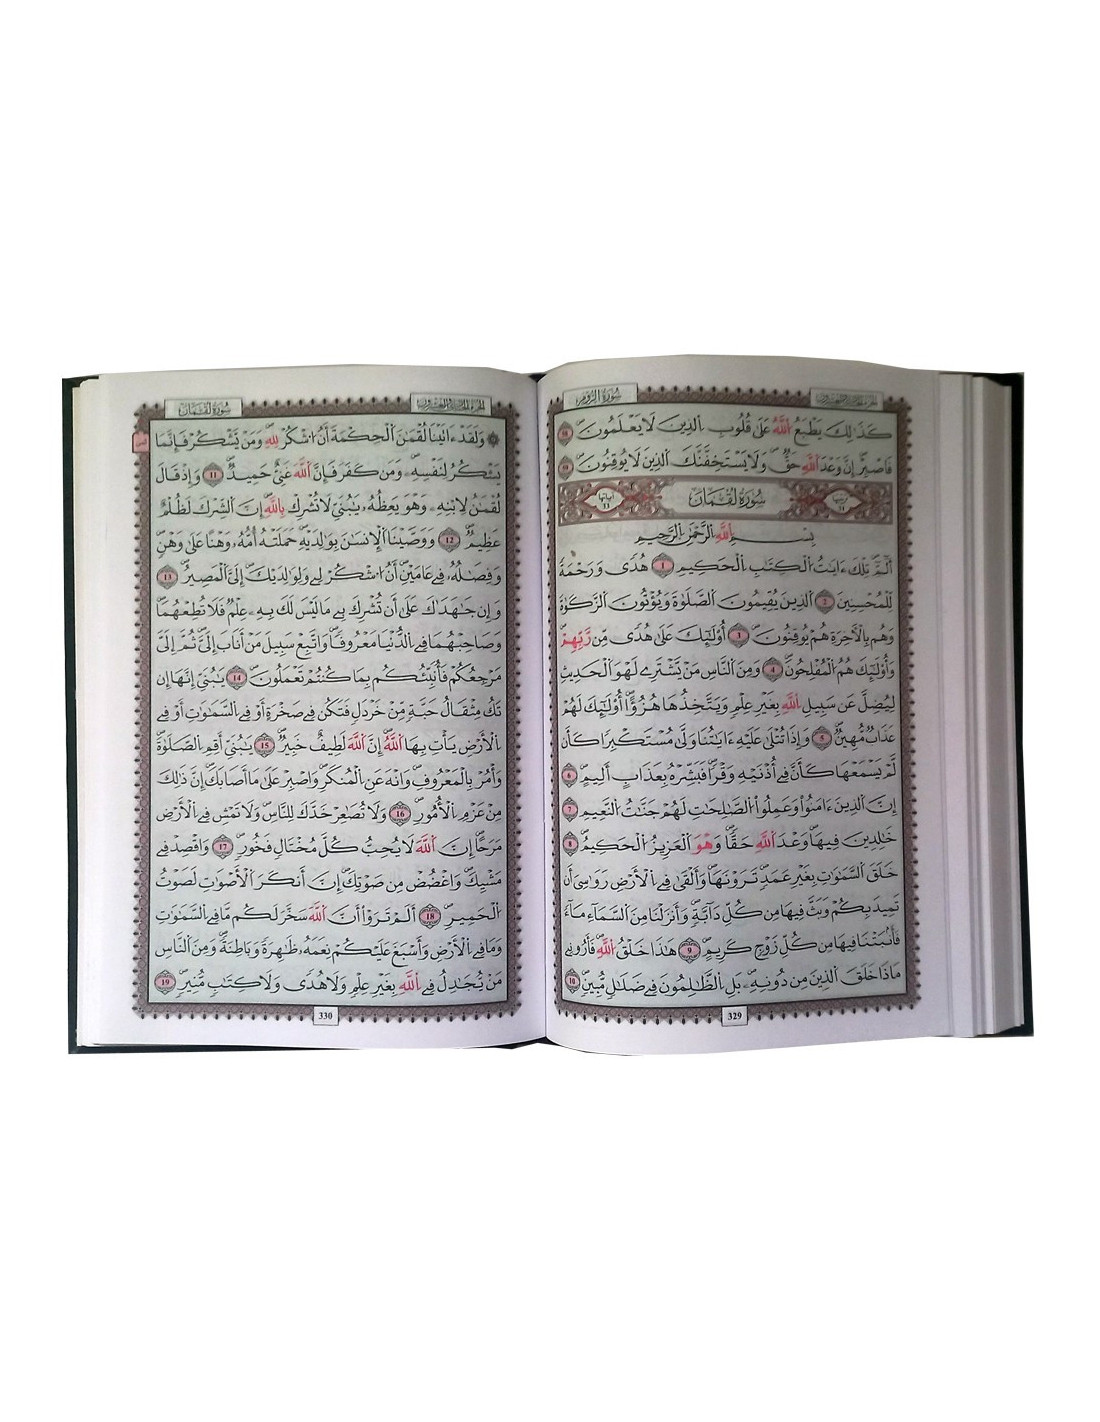 سورة الروم
كَذَٰلِكَ يَطْبَعُ اُ۬للَّهُ عَلَىٰ قُلُوبِ اِ۬لذِينَ لَا يَعْلَمُونَۖ
فَاصْبِرِۖ اِنَّ وَعْدَ اَ۬للَّهِ حَقّٞۖ وَلَا يَسْتَخِفَّنَّكَ اَ۬لذِينَ لَا يُوقِنُونَۖ
سُورَةُ لُقْمَانَ
بِسْمِ اِ۬للَّهِ اِ۬لرَّحْمَٰنِ اِ۬لرَّحِيمِ
أَلَٓمِّٓۖ تِلْكَ ءَايَٰتُ اُ۬لْكِتَٰبِ اِ۬لْحَكِيمِ 1 هُدىٗ وَرَحْمَةٗ
لِّلْمُحْسِنِينَ 2 اَ۬لذِينَ يُقِيمُونَ اَ۬لصَّلَوٰةَ وَيُوتُونَ اَ۬لزَّكَوٰةَ
وَهُم بِالَاخِرَةِ هُمْ يُوقِنُونَۖ 3 أُوْلَٰٓئِكَ عَلَىٰ هُدىٗ مِّن رَّبِّهِمْۖ
وَأُوْلَٰٓئِكَ هُمُ اُ۬لْمُفْلِحُونَۖ 4 وَمِنَ اَ۬لنَّاسِ مَنْ يَّشْتَرِے لَهْوَ اَ۬لْحَدِيثِ
لِيُضِلَّ عَن سَبِيلِ اِ۬للَّهِ بِغَيْرِ عِلْمٖ وَيَتَّخِذُهَا هُزُؤاًۖ اُوْلَٰٓئِكَ لَهُمْ
عَذَابٞ مُّهِينٞۖ 5 وَإِذَا تُتْلَىٰ عَلَيْهِ ءَايَٰتُنَا وَلَّىٰ مُسْتَكْبِراٗ كَأَن
لَّمْ يَسْمَعْهَا كَأَنَّ فِےٓ أُذْنَيْهِ وَقْراٗۖ فَبَشِّرْهُ بِعَذَابٍ اَلِيمٍۖ 6
اِنَّ اَ۬لذِينَ ءَامَنُواْ وَعَمِلُواْ اُ۬لصَّٰلِحَٰتِ لَهُمْ جَنَّٰتُ اُ۬لنَّعِيمِ 7
خَٰلِدِينَ فِيهَاۖ وَعْدَ اَ۬للَّهِ حَقّاٗۖ وَهْوَ اَ۬لْعَزِيزُ اُ۬لْحَكِيمُۖ 8
خَلَقَ اَ۬لسَّمَٰوَٰتِ بِغَيْرِ عَمَدٖ تَرَوْنَهَاۖ وَأَلْقَىٰ فِے اِ۬لَارْضِ رَوَٰسِيَ أَن
تَمِيدَ بِكُمْ وَبَثَّ فِيهَا مِن كُلِّ دَآبَّةٖۖ وَأَنزَلْنَا مِنَ اَ۬لسَّمَآءِ مَآءٗ
فَأَنۢبَتْنَا فِيهَا مِن كُلِّ زَوْجٖ كَرِيمٍۖ 9 هَٰذَا خَلْقُ اُ۬للَّهِ فَأَرُونِے
مَاذَا خَلَقَ اَ۬لذِينَ مِن دُونِهِۦۖ بَلِ اِ۬لظَّٰلِمُونَ فِے ضَلَٰلٖ مُّبِينٖۖ 10
329
سورة لقمان
وَلَقَدَ اٰتَيْنَا لُقْمَٰنَ اَ۬لْحِكْمَةَ أَنُ اُ۟شْكُرْ لِلهِۖ وَمَنْ يَّشْكُرْ فَإِنَّمَا
يَشْكُرُ لِنَفْسِهِۦۖ وَمَن كَفَرَ فَإِنَّ اَ۬للَّهَ غَنِيٌّ حَمِيدٞۖ 11 وَإِذْ قَالَ
لُقْمَٰنُ لِابْنِهِۦ وَهْوَ يَعِظُهُۥ يَٰبُنَيِّ لَا تُشْرِكْ بِاللَّهِۖ إِنَّ اَ۬لشِّرْكَ لَظُلْمٌ
عَظِيمٞۖ 12 وَوَصَّيْنَا اَ۬لِانسَٰنَ بِوَٰلِدَيْهِۖ حَمَلَتْهُ أُمُّهُۥ وَهْناً عَلَىٰ وَهْنٖ
وَفِصَٰلُهُۥ فِے عَامَيْنِۖ أَنُ اُ۟شْكُرْ لِے وَلِوَٰلِدَيْكَۖ إِلَيَّ اَ۬لْمَصِيرُۖ 13
وَإِن جَٰهَدَٰكَ عَلَىٰٓ أَن تُشْرِكَ بِے مَا لَيْسَ لَكَ بِهِۦ عِلْمٞ فَلَا تُطِعْهُمَاۖ
وَصَاحِبْهُمَا فِے اِ۬لدُّنْي۪ا مَعْرُوفاٗۖ وَاتَّبِعْ سَبِيلَ مَنَ اَنَابَ إِلَيَّۖ ثُمَّ إِلَيَّ
مَرْجِعُكُمْ فَأُنَبِّئُكُم بِمَا كُنتُمْ تَعْمَلُونَۖ 14 يَٰبُنَيِّ إِنَّهَآ إِن
تَكُ مِثْقَالُ حَبَّةٖ مِّنْ خَرْدَلٖ فَتَكُن فِے صَخْرَةٍ اَوْ فِے اِ۬لسَّمَٰوَٰتِ أَوْ فِے
اِ۬لَارْضِ يَاتِ بِهَا اَ۬للَّهُۖ إِنَّ اَ۬للَّهَ لَطِيفٌ خَبِيرٞۖ 15 يَٰبُنَيِّ أَقِمِ اِ۬لصَّلَوٰةَ
وَامُرْ بِالْمَعْرُوفِ وَانْهَ عَنِ اِ۬لْمُنكَرِۖ وَاصْبِرْ عَلَىٰ مَآ أَصَابَكَۖ إِنَّ ذَٰلِكَ
مِنْ عَزْمِ اِ۬لُامُورِۖ 16 وَلَا تُصَٰعِرْ خَدَّكَ لِلنَّاسِ وَلَا تَمْشِ فِے اِ۬لَارْضِ
مَرَحاًۖ اِنَّ اَ۬للَّهَ لَا يُحِبُّ كُلَّ مُخْتَالٖ فَخُورٖۖ 17 وَاقْصِدْ فِے
مَشْيِكَۖ وَاغْضُضْ مِن صَوْتِكَۖ إِنَّ أَنكَرَ اَ۬لَاصْوَٰتِ لَصَوْتُ
اُ۬لْحَمِيرِۖ 18 أَلَمْ تَرَوَاْ اَنَّ اَ۬للَّهَ سَخَّرَ لَكُم مَّا فِے اِ۬لسَّمَٰوَٰتِ
وَمَا فِے اِ۬لَارْضِ وَأَسْبَغَ عَلَيْكُمْ نِعَمَهُۥ ظَٰهِرَةٗ وَبَاطِنَةٗۖ وَمِنَ اَ۬لنَّاسِ
مَنْ يُّجَٰدِلُ فِے اِ۬للَّهِ بِغَيْرِ عِلْمٖ وَلَا هُدىٗ وَلَا كِتَٰبٖ مُّنِيرٖۖ 19
330